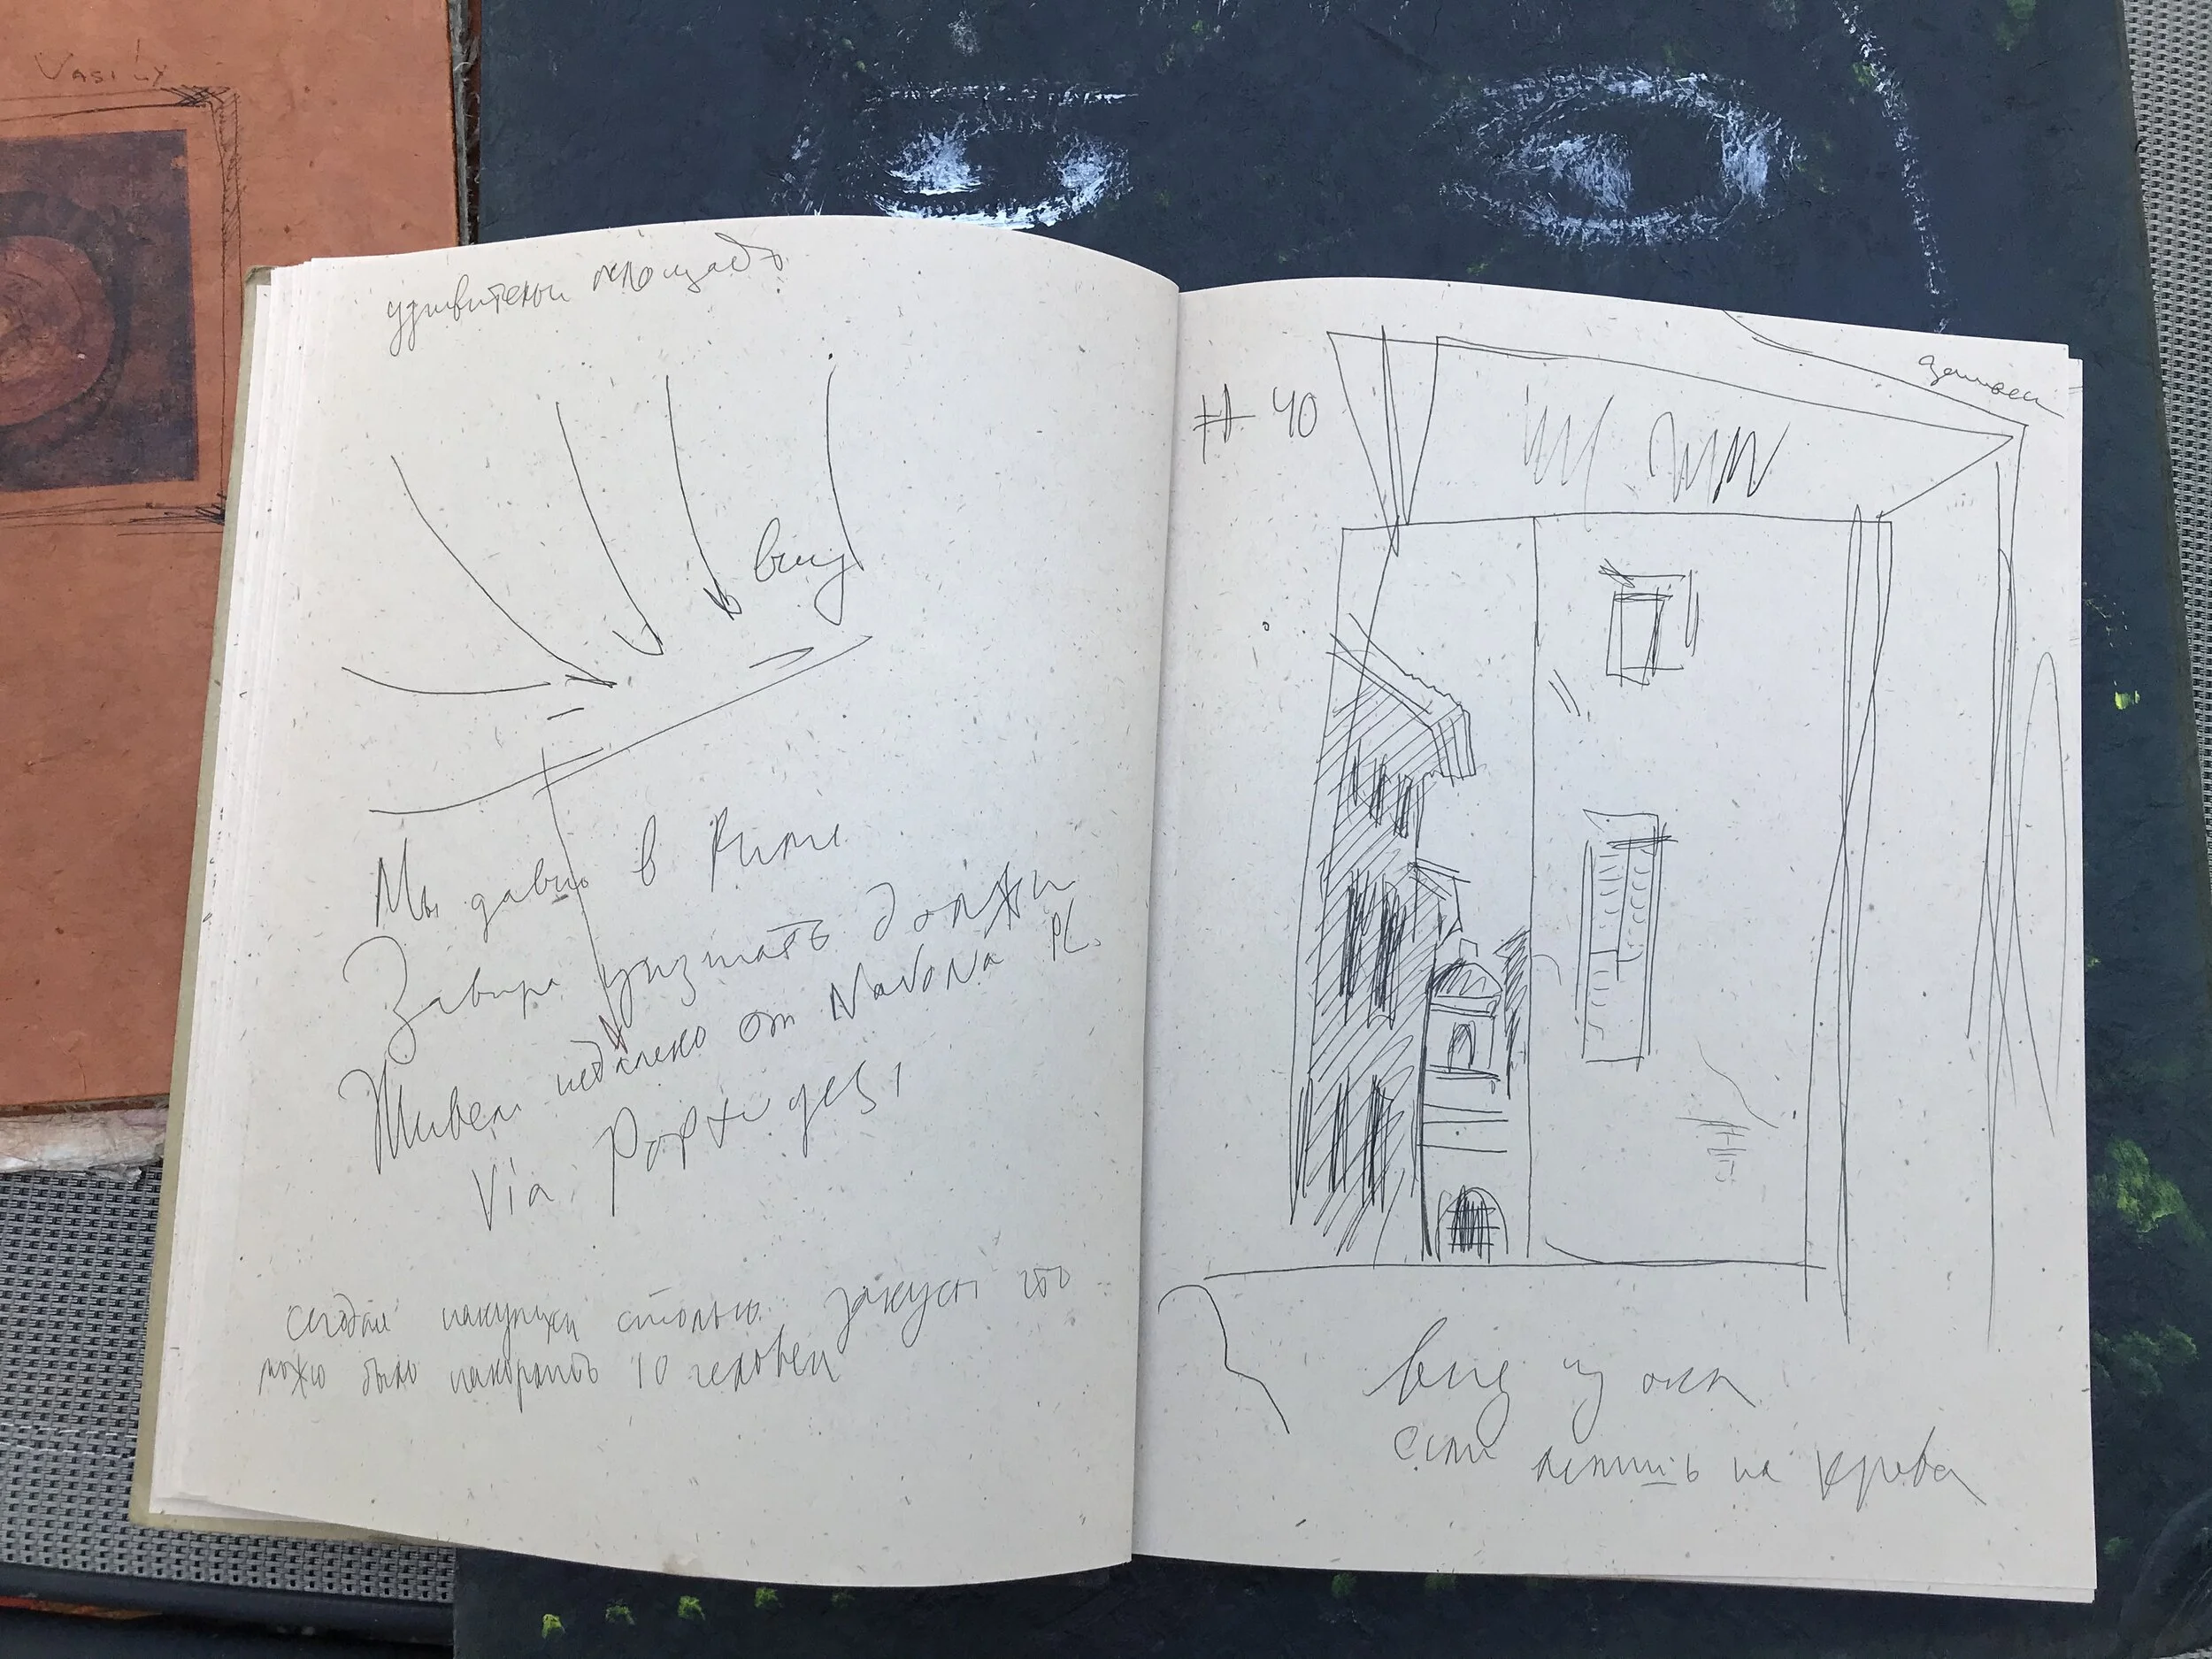 VASILY
удивительн площадь
вниз
Мы давно в Риме
Завтра уезжать должны
Живем недалеко от NavoNa PL.
Via
сегодня столько закусок что
можно было накормить 10 человек
# 40
вид из окна
если на крова